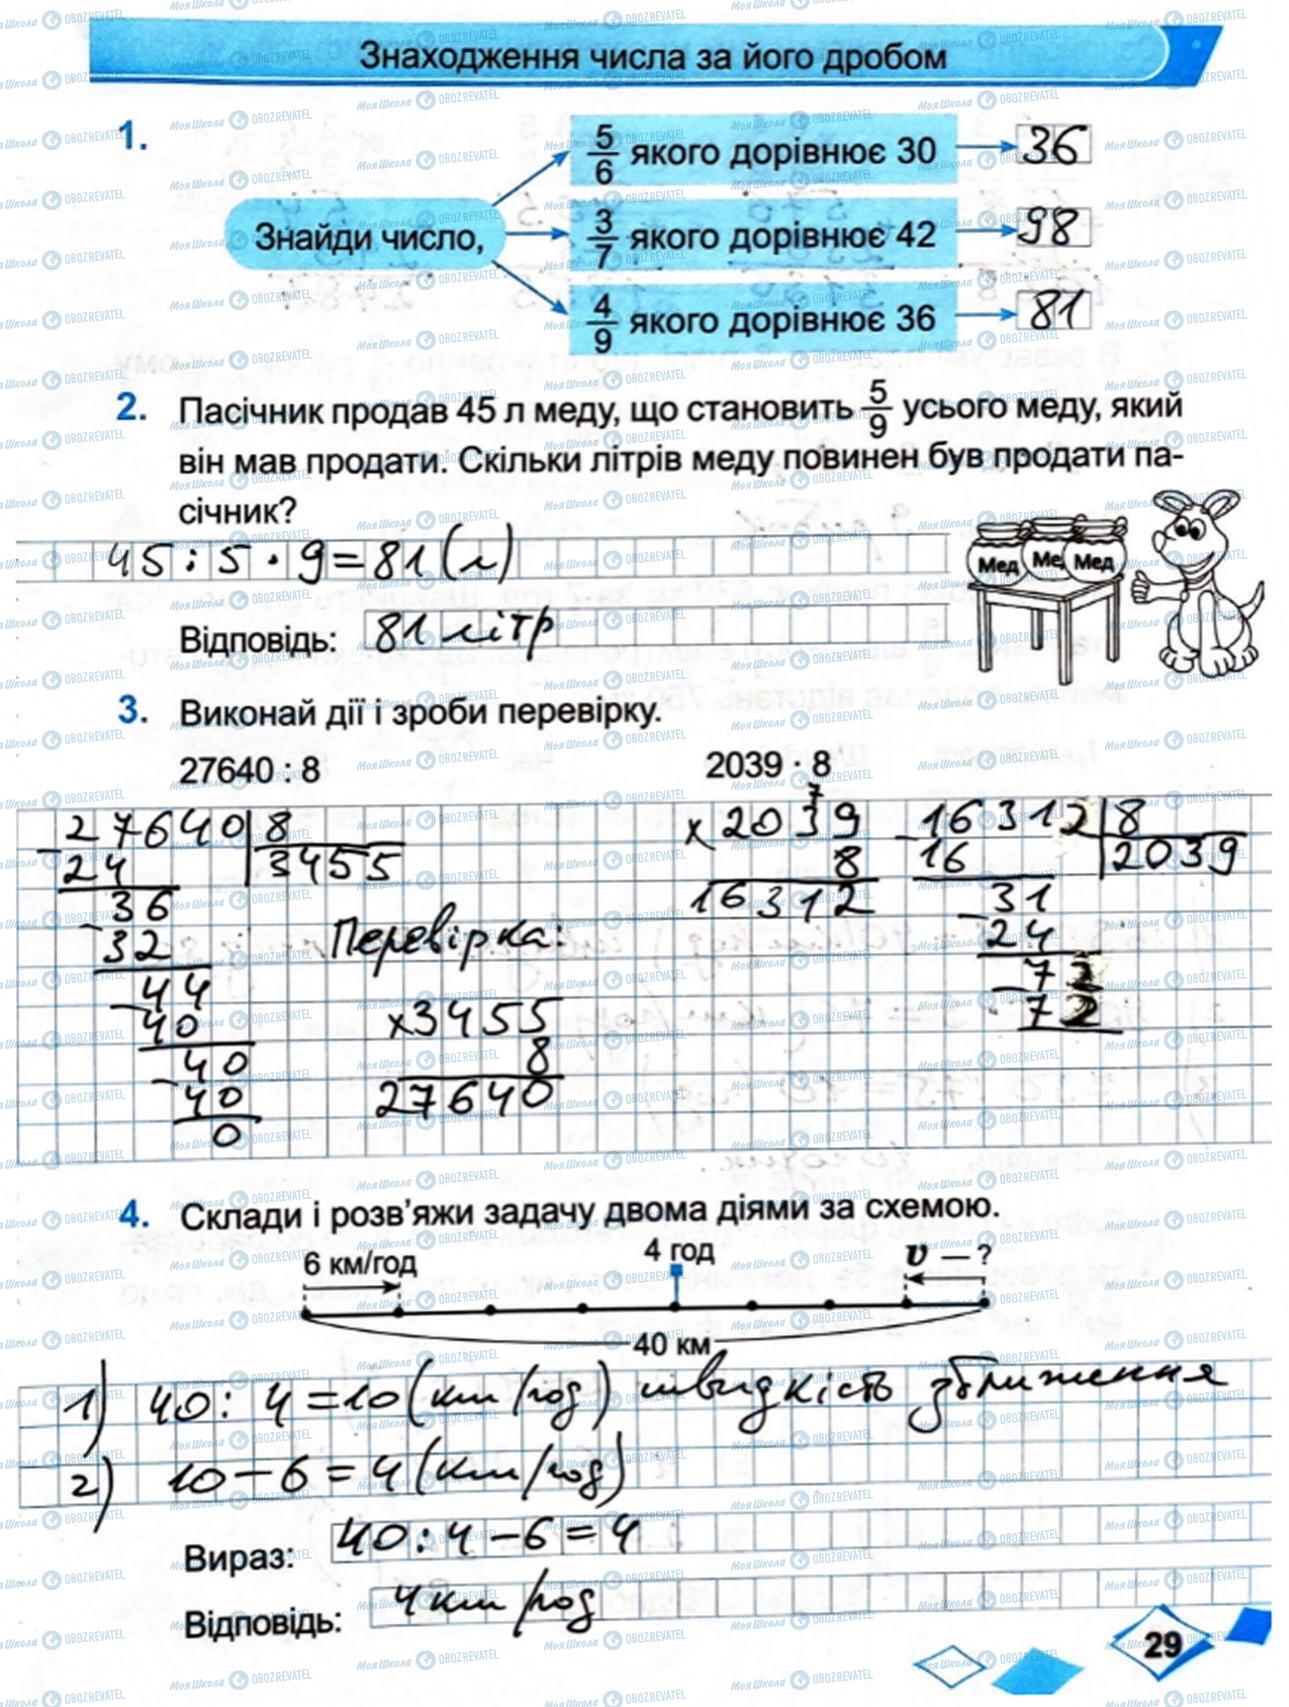 Знаходження числа за його дробом
1.
Знайди число,
5/6 якого дорівнює 30 36
3/7 якого дорівнює 42 98
4/9 якого дорівнює 36 81
2. Пасічник продав 45 л меду, що становить 5/9 усього меду, який
він мав продати. Скільки літрів меду повинен був продати па-
січник?
45 : 5 · 9 = 81 (л)
Мед Ме Мед
Відповідь: 81 літр
3. Виконай дії і зроби перевірку.
27640 : 8 2039 · 8
7
- 27640 | 8 × 2039 - 16312 | 8
24 3455 8 16 2039
36 16312 - 31
- 32 Перевірка: 24
- 44 - 72
40 × 3455 72
- 40 8
40 27640
0
4. Склади і розв’яжи задачу двома діями за схемою.
6 км/год 4 год v — ?
40 км
1) 40 : 4 = 10 (км/год) швидкість зближення
2) 10 - 6 = 4 (км/год)
Вираз: 40 : 4 - 6 = 4
Відповідь: 4 км/год
29
МояШкола OBOZREVATEL